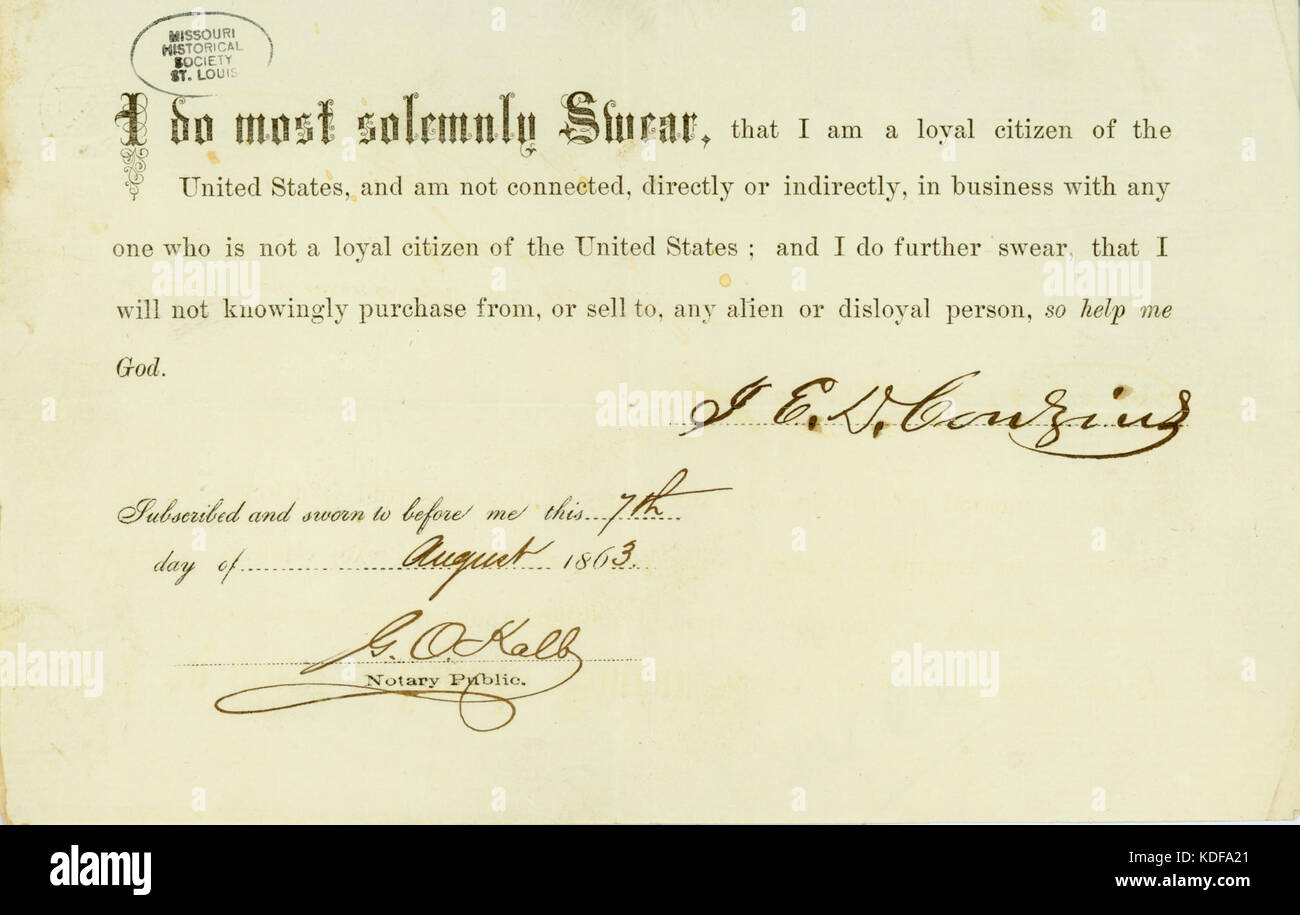 MISSOURI
HISTORICAL
SOCIETY
ST. LOUIS
I do most solemnly Swear, that I am a loyal citizen of the
United States, and am not connected, directly or indirectly, in business with any
one who is not a loyal citizen of the United States ; and I do further swear, that I
will not knowingly purchase from, or sell to, any alien or disloyal person, so help me
God.
J E. D. Couzins
Subscribed and sworn to before me this 7th
day of August 1863.
G. O. Kalb
Notary Public.
a alamy stock photo
alamy
Image ID: KDFA21
www.alamy.com